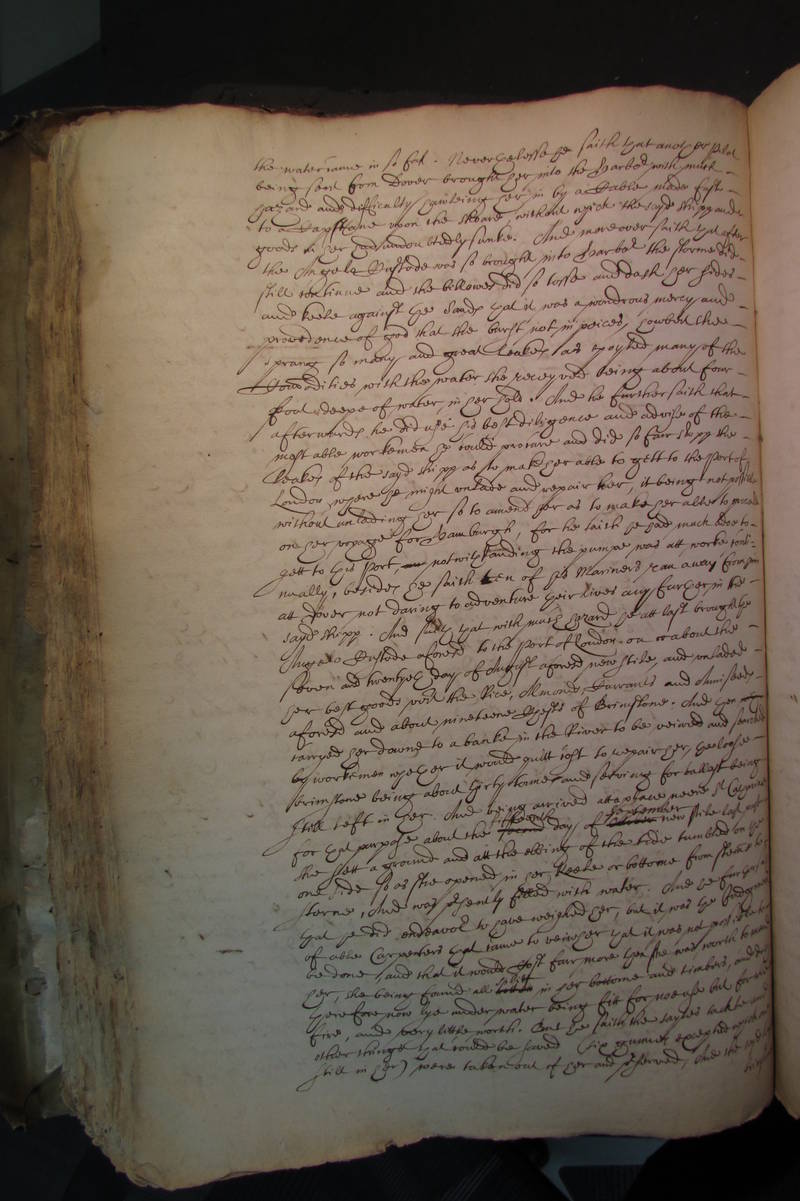 the water came in so fast. Neverthelesse he saith that another pilot
being sent from Dover brought her into the Harbor with much
hazard and difficulty hawleing her in by a Cable made fast
to a Capstane upon the shoare, without which the sayd shipp and
goods in her had undoubtedly sunke. And moreover saith that after
the Angelo Custode was so brought into Harbor the storme did
still continue and the billowes did so tosse and dash her sides
and keele against the Sands that it was a wondrous mercy and
providence of god that she burst not in peices, howbeit shee
sprang so many and great Leakes as spoyled many of the
Comodities with the water she receyved being about four
foot deepe of water in her hold. And he further saith that
afterwards he did use his best diligence and advise of the
most able workemen he could procure and did so farr stopp the
Leakes of the sayd shipp as to make her able to gett to the Port of
London where he might unlade and repair her, it being not possible
without unlading her so to amend her as to make her able to proceede
on her voyage for Hamburgh, for he saith he had much adoe to
gett to this Port, notwithstanding the pumpe was att worke conti-
nually, besides he saith ten of his Mariners ran away from him
att Dover not daring to adventure their lives any further in the
sayd shipp. And saith that with much hazard he att last brought the
Angelo Custode aforesd to the Port of London on or about the
seven and twentyeth day of August aforesd new stile, and unladed
her best goods with the Rice, Almonds, Currants and Anniseeds
aforesd and about nineteene Chests of Brimstone. And then
carryed her downe to a banke in the River to be veiwed and searched
by workemen whether it would quitt cost to repair her, the loose
brimstone being about thirty tonnes and serving for ballast being
still left in her. And being arrived att a place neere St Catharines
for that purpose about the fifteenth day of September new stile last past
she sett a ground and att the ebbing of the tide tumbled on the
one side so as she opened in her Keele or bottome from stemme to
sterne, And was presently filled with water. And he further saith
that he did endeavor to have weighed her, but it was the Judgment
of able Carpenters that came to veiw her that it was not possible to be
done, and that it would cost farr more then she was worth to mend
her, she being found all in her bottome and timbers, and
therefore now the under water being fitt for noe use but for
fire, and very little worth. But he saith the sayles tackle and
other things that could be saved (six gunnes excepted which are
still in her) were taken out of her and preserved, And the sayd